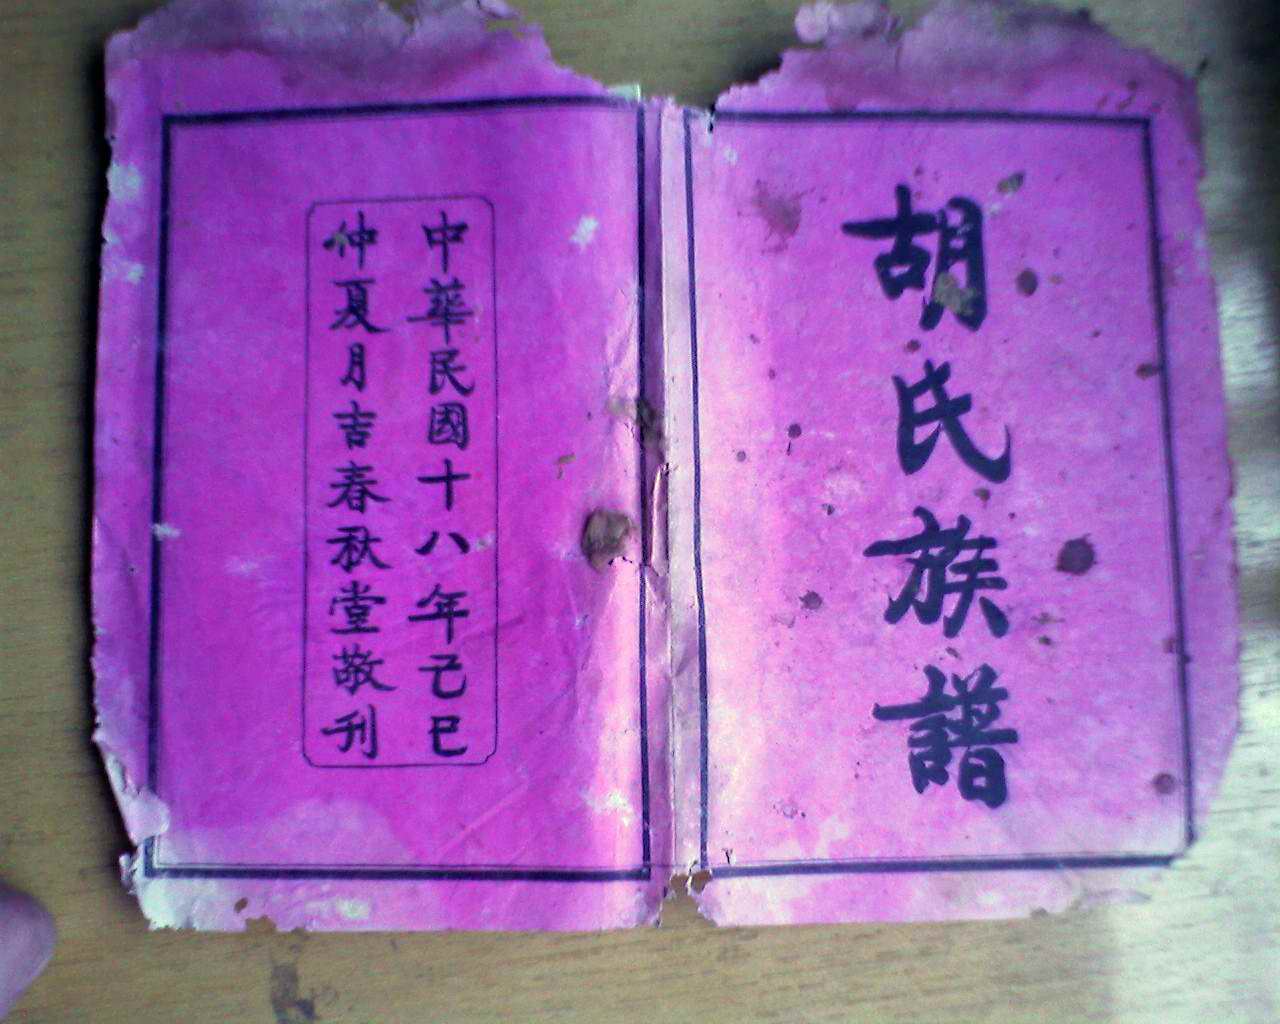 胡氏族譜
中華民國十八年己巳
仲夏月吉春秋堂敬刊